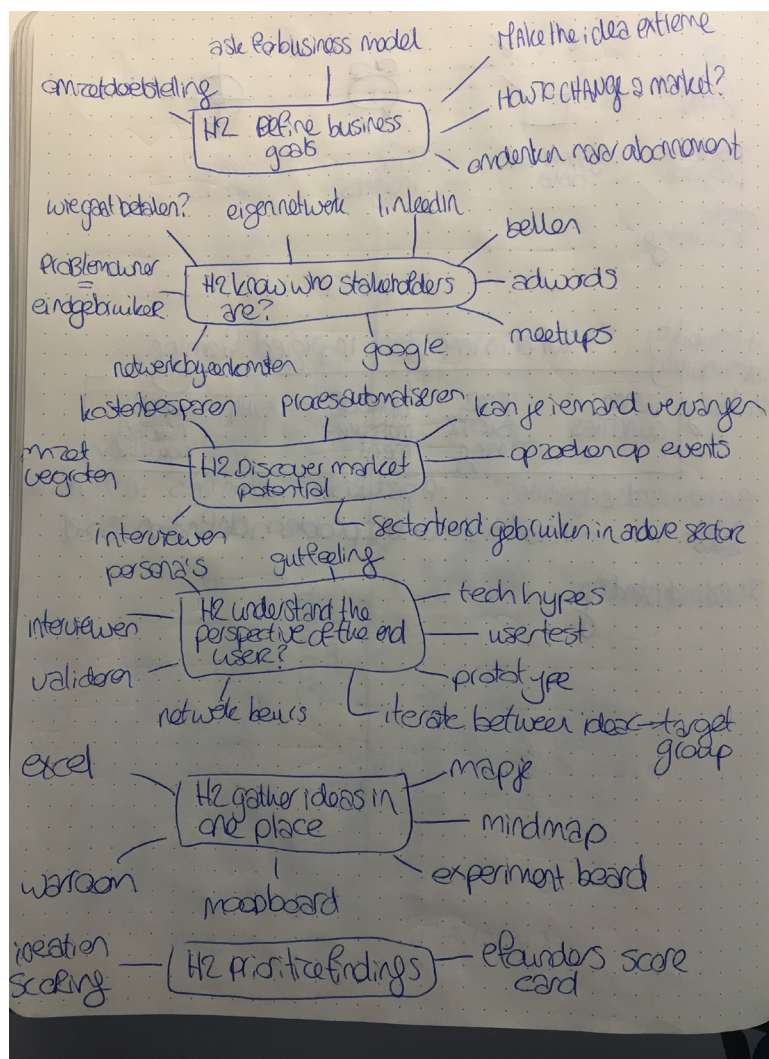 ask for business model
Make the idea extreme
omzetdoelstelling
How TO CHANGE a market?
H2 Define business
goals
omdenken naar abonnement
wie gaat betalen?
eigen netwerk
linledIn
bellen
Problemowner
=
eindgebruiker
H2 know who stakeholders
are?
adwords
meetups
google
netwerkbijeenkomsten
kostenbesparen
proces automatiseren
kan je iemand vervangen
omzet
vergroten
H2 Discover market
potential
opzoeken op events
Interviewen
sectortrend gebruiken in andere sector
persona's
gutfeeling
tech hypes
interviewen
H2 understand the
perspective of the end
user?
usertest
valideren
prototype
netwerk beurs
iterate between idea target
group
excel
mapje
H2 gather ideas in
one place
mindmap
warroom
experiment board
moodboard
ideation
scoring
H2 prioritize findings
efounders score
card